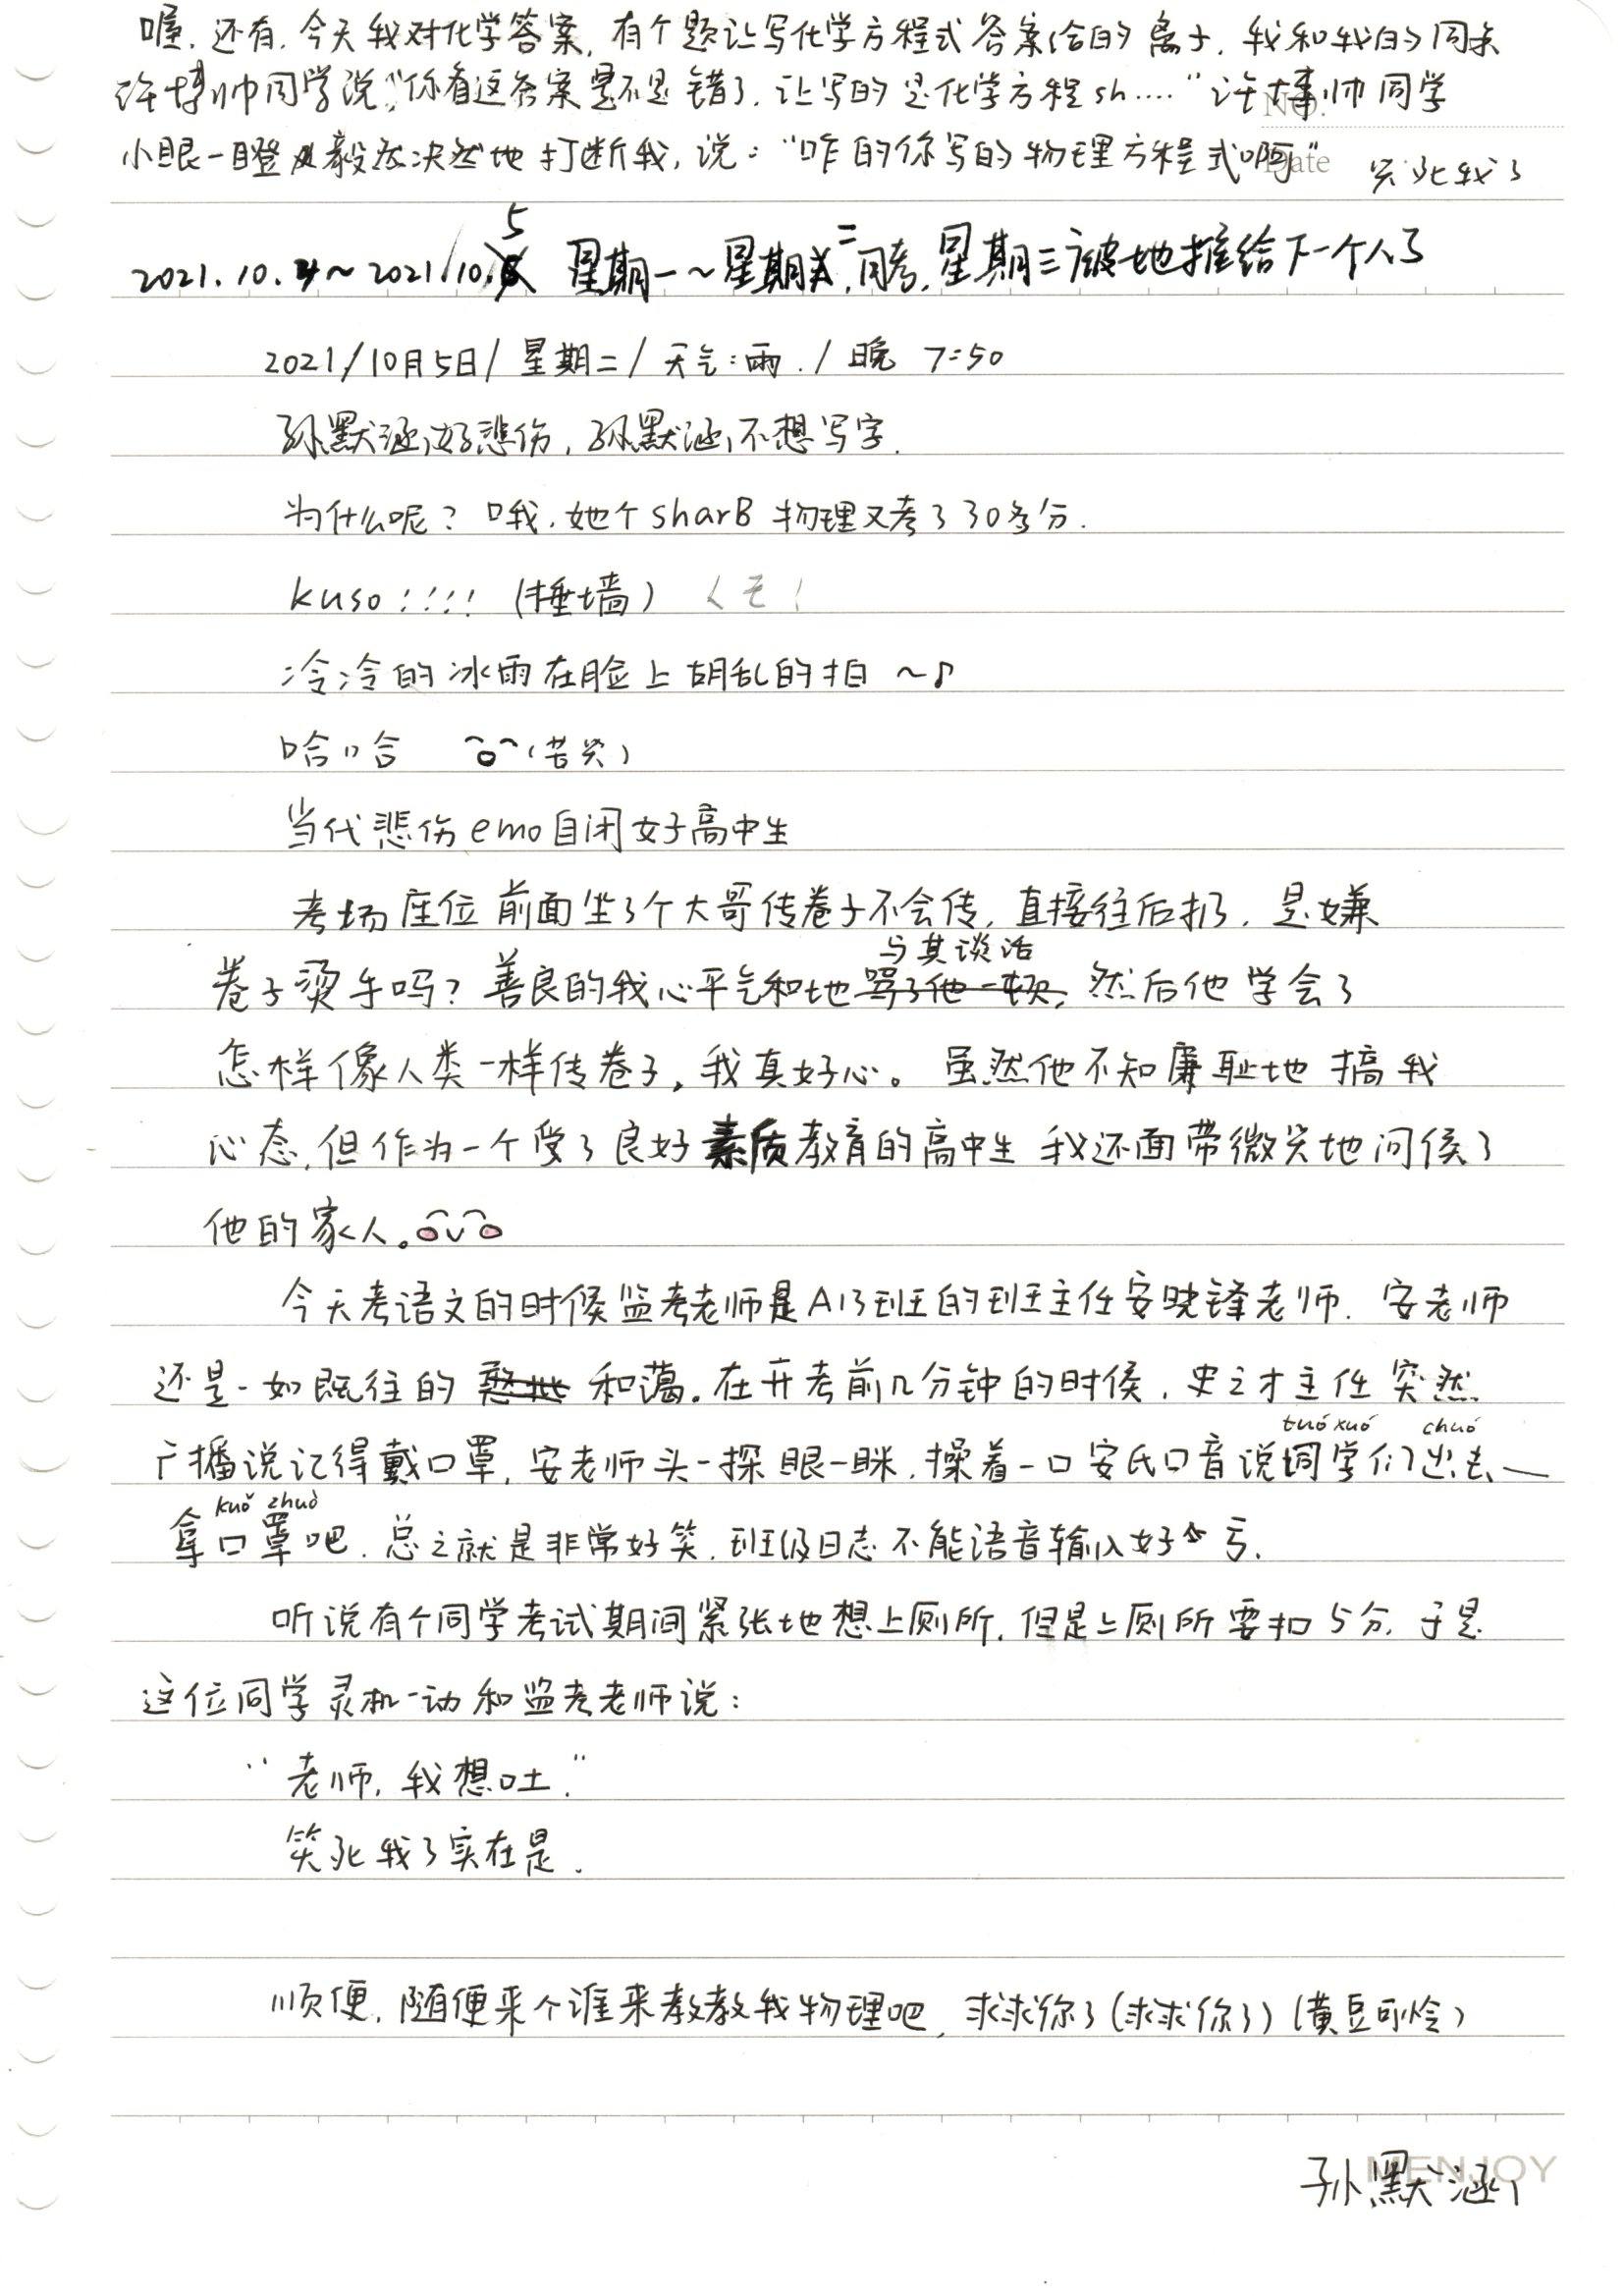 喔,还有,今天我对化学答案,有个题让写化学方程式答案给的离子,我和我的同桌
许博帅同学说,"你看这答案是不是错了,让写的是化学方程sh...." 许博帅同学
NO.
小眼一瞪 毅然决然地打断我,说:"咋的你写的物理方程式啊" 笑死我了
Date
5
2021.10.4~2021/10. 星期一~星期二,月考,星期三被地推给下一个人了
2021/10月5日/星期二/天气:雨./晚 7:50
孙默涵好悲伤,孙默涵不想写字.
为什么呢?哦,她个sharB物理又考了30多分.
kuso!!!!(捶墙) くそ!
冷冷的冰雨在脸上胡乱的拍~♪
哈哈 (苦笑)
当代悲伤emo自闭女子高中生
考场座位前面坐了个大哥传卷子不会传,直接往后扔,是嫌
与其谈话
卷子烫手吗?善良的我心平气和地骂了他一顿,然后他学会了
怎样像人类一样传卷子,我真好心。虽然他不知廉耻地搞我
心态,但作为一个受了良好素质教育的高中生 我还面带微笑地问候了
他的家人。
今天考语文的时候监考老师是A13班的班主任安晓锋老师.安老师
还是一如既往的 和蔼。在开考前几分钟的时候,史之才主任突然
tuó xuó chuó
广播说记得戴口罩,安老师头一探眼一眯,操着一口安氏口音说同学们出去
kuǒ zhuò
拿口罩吧.总之就是非常好笑,班级日志不能语音输入好亏.
听说有个同学考试期间紧张地想上厕所,但是上厕所要扣5分,于是
这位同学灵机一动和监考老师说:
"老师,我想吐."
笑死我了实在是.
顺便,随便来个谁来教教我物理吧,求求你了(求求你了)(黄豆可怜)
MENJOY
孙默涵